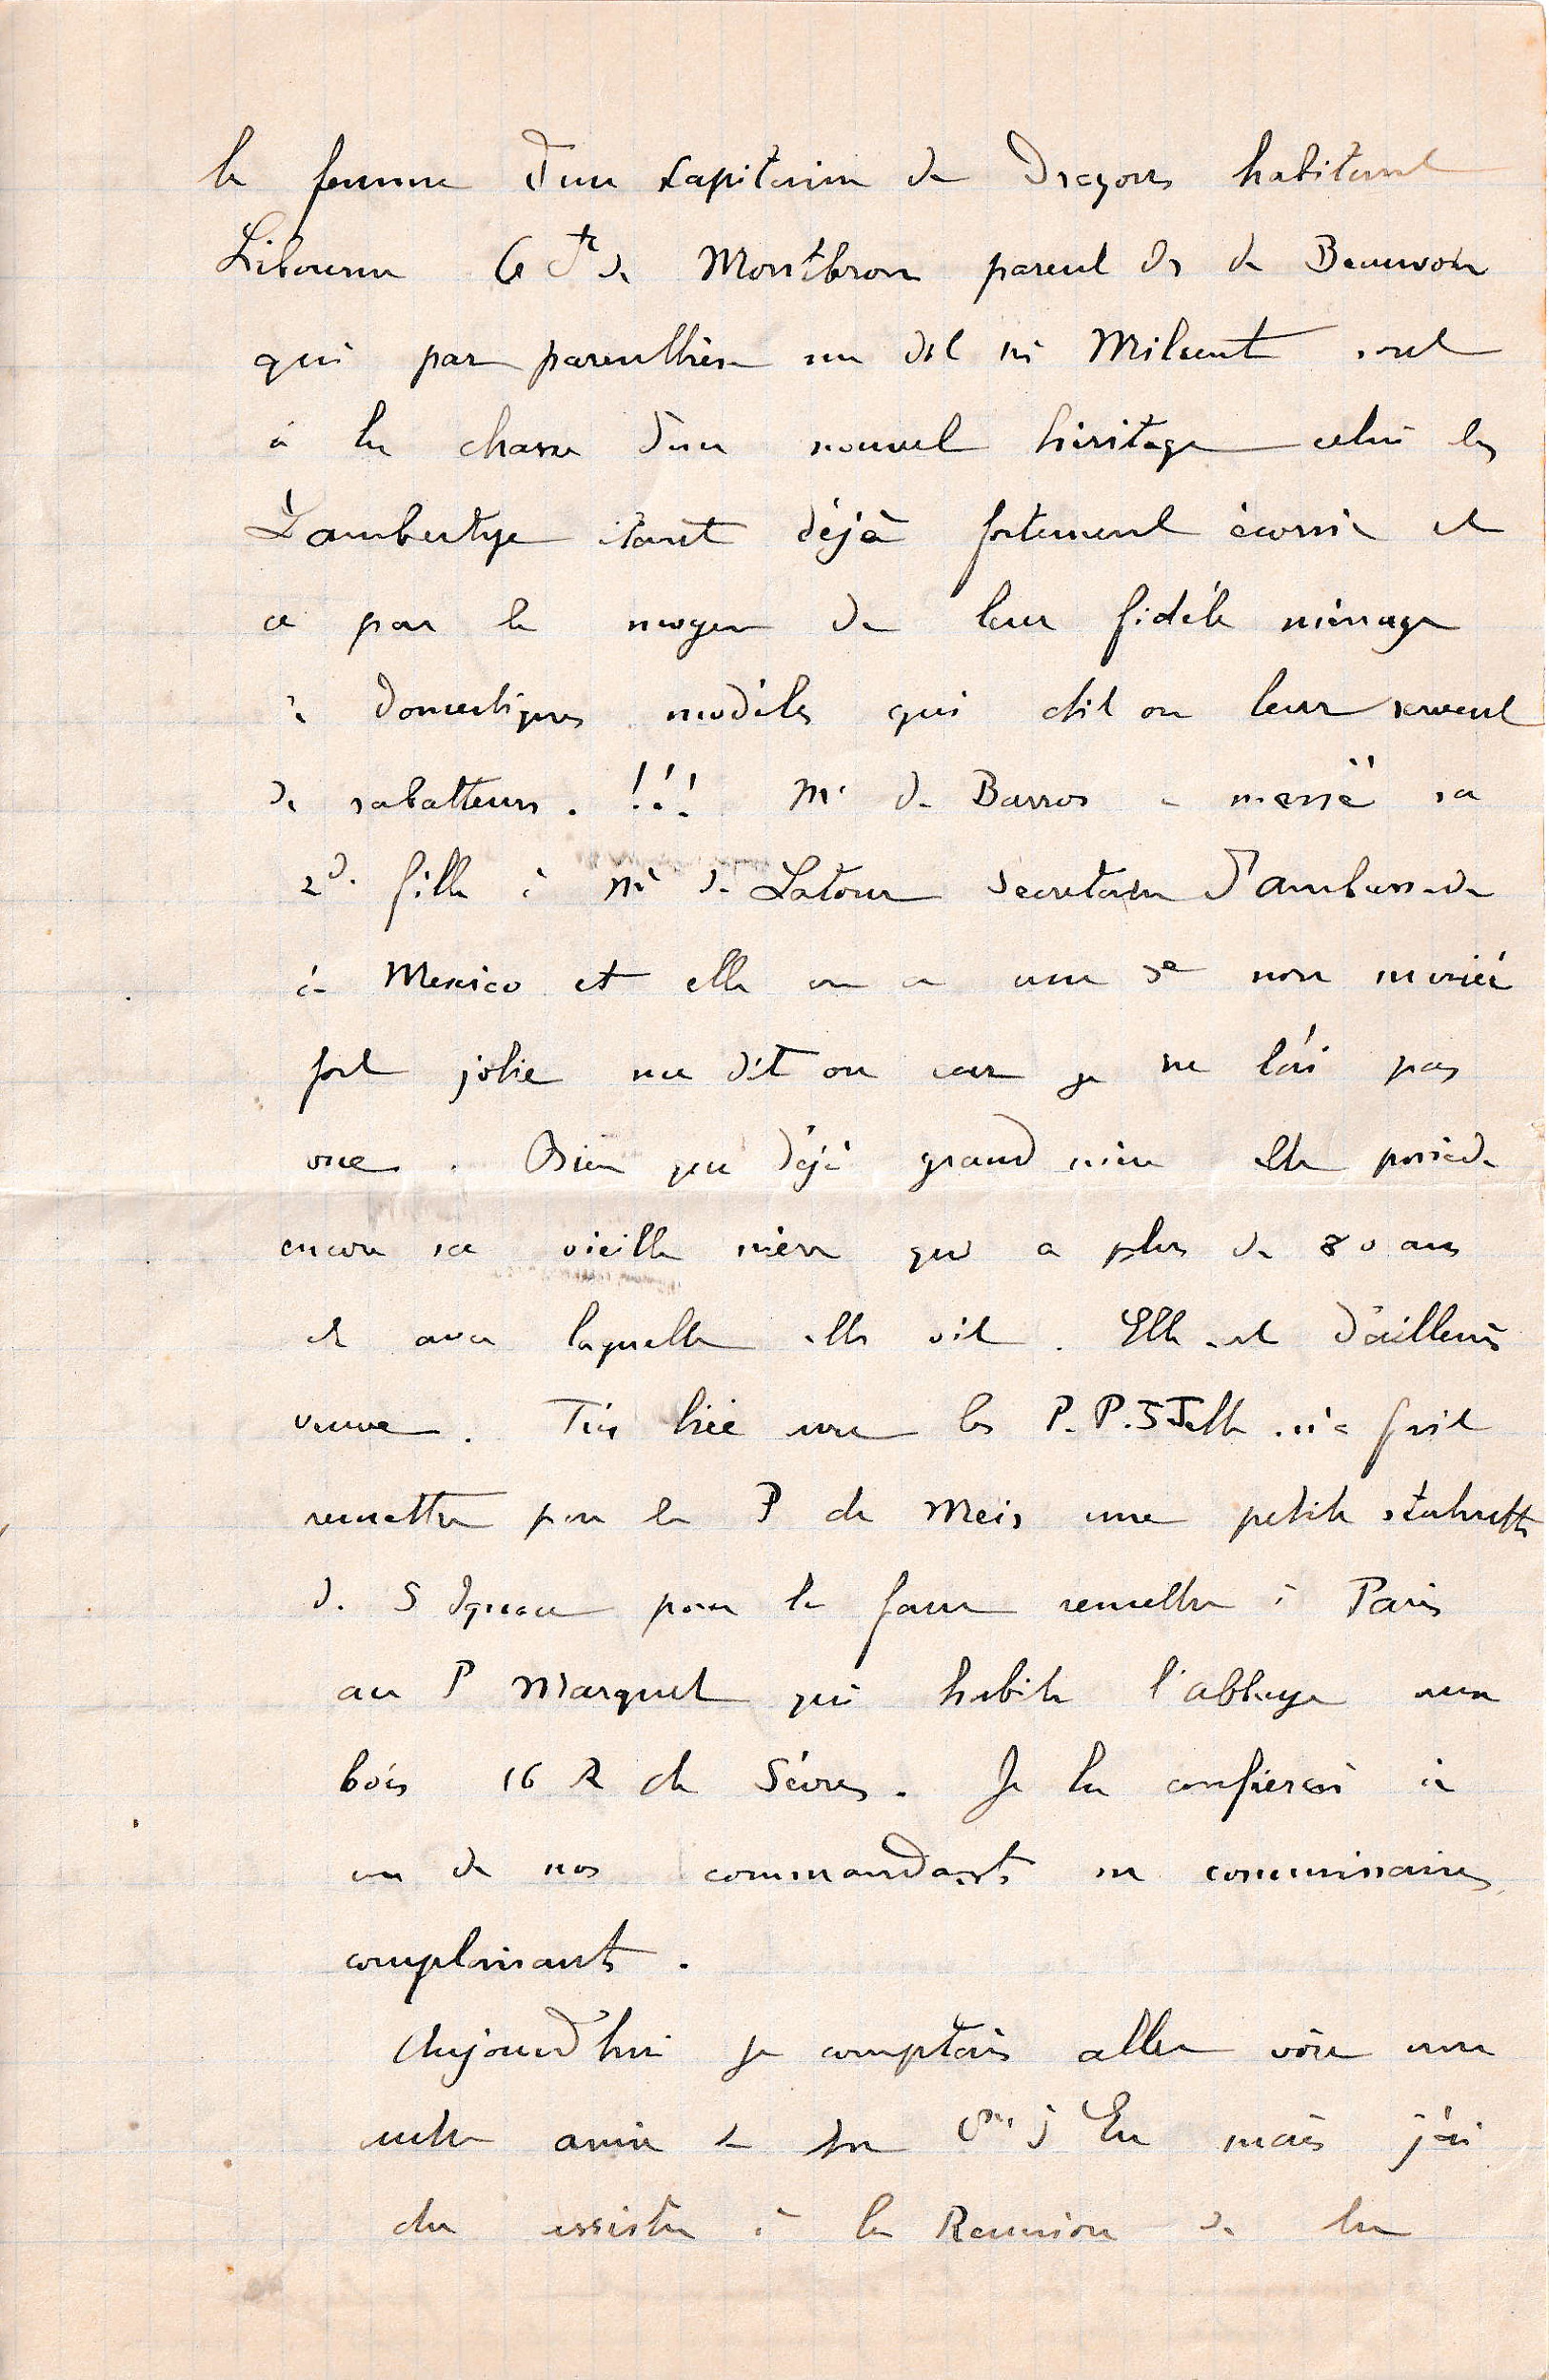 la femme d'un capitaine de Dragons habitant
Libourne Cte de Montbron parent des de Beauvoir
qui par parenthèse me dit Milient sont
à la chasse d'un nouvel héritage celui les
Lambertye étant déjà fortement écorné et
ce par le moyen de leur fidèle ménage
de domestiques modèles qui dit on leur servent
de rabatteurs. !!! Mr de Barros a marié sa
2d. fille à Mr de Latour secretaire d'ambassade
à Mexico et elle en a une 3e non mariée
fort jolie me dit on car je ne l'ai pas
vue. Bien que déjà grand mère elle possède
encore sa vieille mère qui a plus de 80 ans
et avec laquelle elle vit. Elle est d'ailleurs
veuve. Très liée avec les P.P. S J elle m'a fait
remettre par le P de Meis une petite statuette
de S Ignace pour la faire remettre à Paris
au P Marquet qui habite l'abbaye aux
bois 16 R de Sèvres. Je la confierai à
un de nos commandants ou commissaires
complaisants.
Aujourd'hui je comptais aller voir une
autre amie la d'Eu mais j'ai
du assister à la Reunion de la